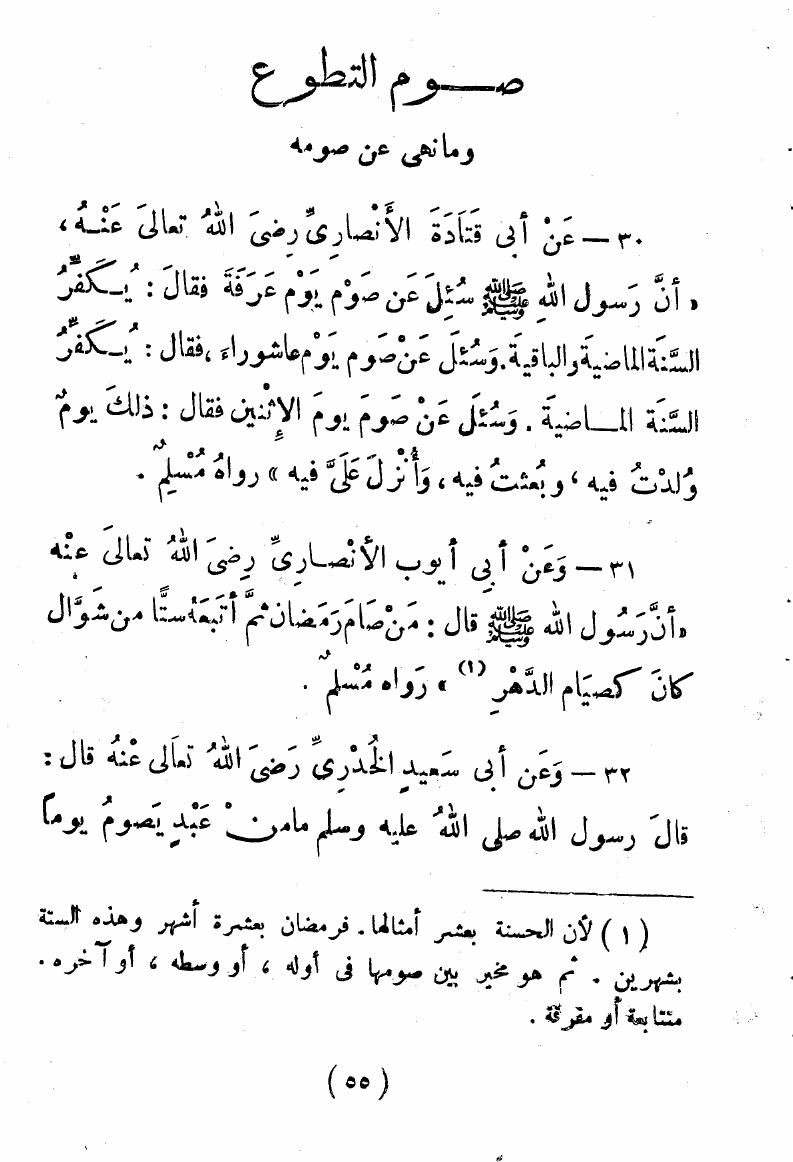 صـــوم التطوع
ومانهى عن صومه
٣٠ — عَنْ أبى قَتَادَةَ الأَنْصارِىِّ رِضىَ اللهُ تعالىَ عَنْـهُ ،
« أنَّ رَسول اللهِ ﷺ سُئِلَ عَن صَوْم يَوْم عَرَفَةَ فقالَ : يُـكَفِّرُ
السَّنَةَ الماضيةَ والباقيةَ . وَسُئلَ عَنْ صَوم يَوْم عاشوراءَ ، فقال : يُـكَفِّرُ
السَّنَة المـاضيةَ . وَسُئلَ عَنْ صَومَ يومَ الاِثْنين فقال : ذلكَ يومٌ
وُلدْتُ فيه ، وبُعثتُ فيه ، وَأُنْزلَ عَلَىَّ فيه » رواهُ مُسْلِمٌ .
٣١ — وَعَنْ أبِي أيوب الأنْصـارِىِّ رِضىَ اللهُ تعالىَ عنْه
« أنَّ رَسُول الله ﷺ قال : مَنْ صَامَ رَمَضان ثمَّ أتبَعَهُ ستًّا من شَوَّال
كانَ كصيَام الدَّهْرِ (١) » رَواه مُسْلمٌ .
٣٢ — وَعَن أبى سَعيدٍ الخُدْرِىِّ رَضىَ اللهُ تعَالَى عْنهُ قال :
قالَ رسول الله صلى اللهُ عليه وسلم مامنْ عَبْدٍ يَصومُ يوماً
( ١ ) لأن الحسنة بعشر أمثالها . فرمضان بعشرة أشهر وهذه الستة
بشهرين . ثم هو مخير بين صومها فى أوله ، أو وسطه ، أو آخره .
متتابعة أو مفرقة .
( ٥٥ )